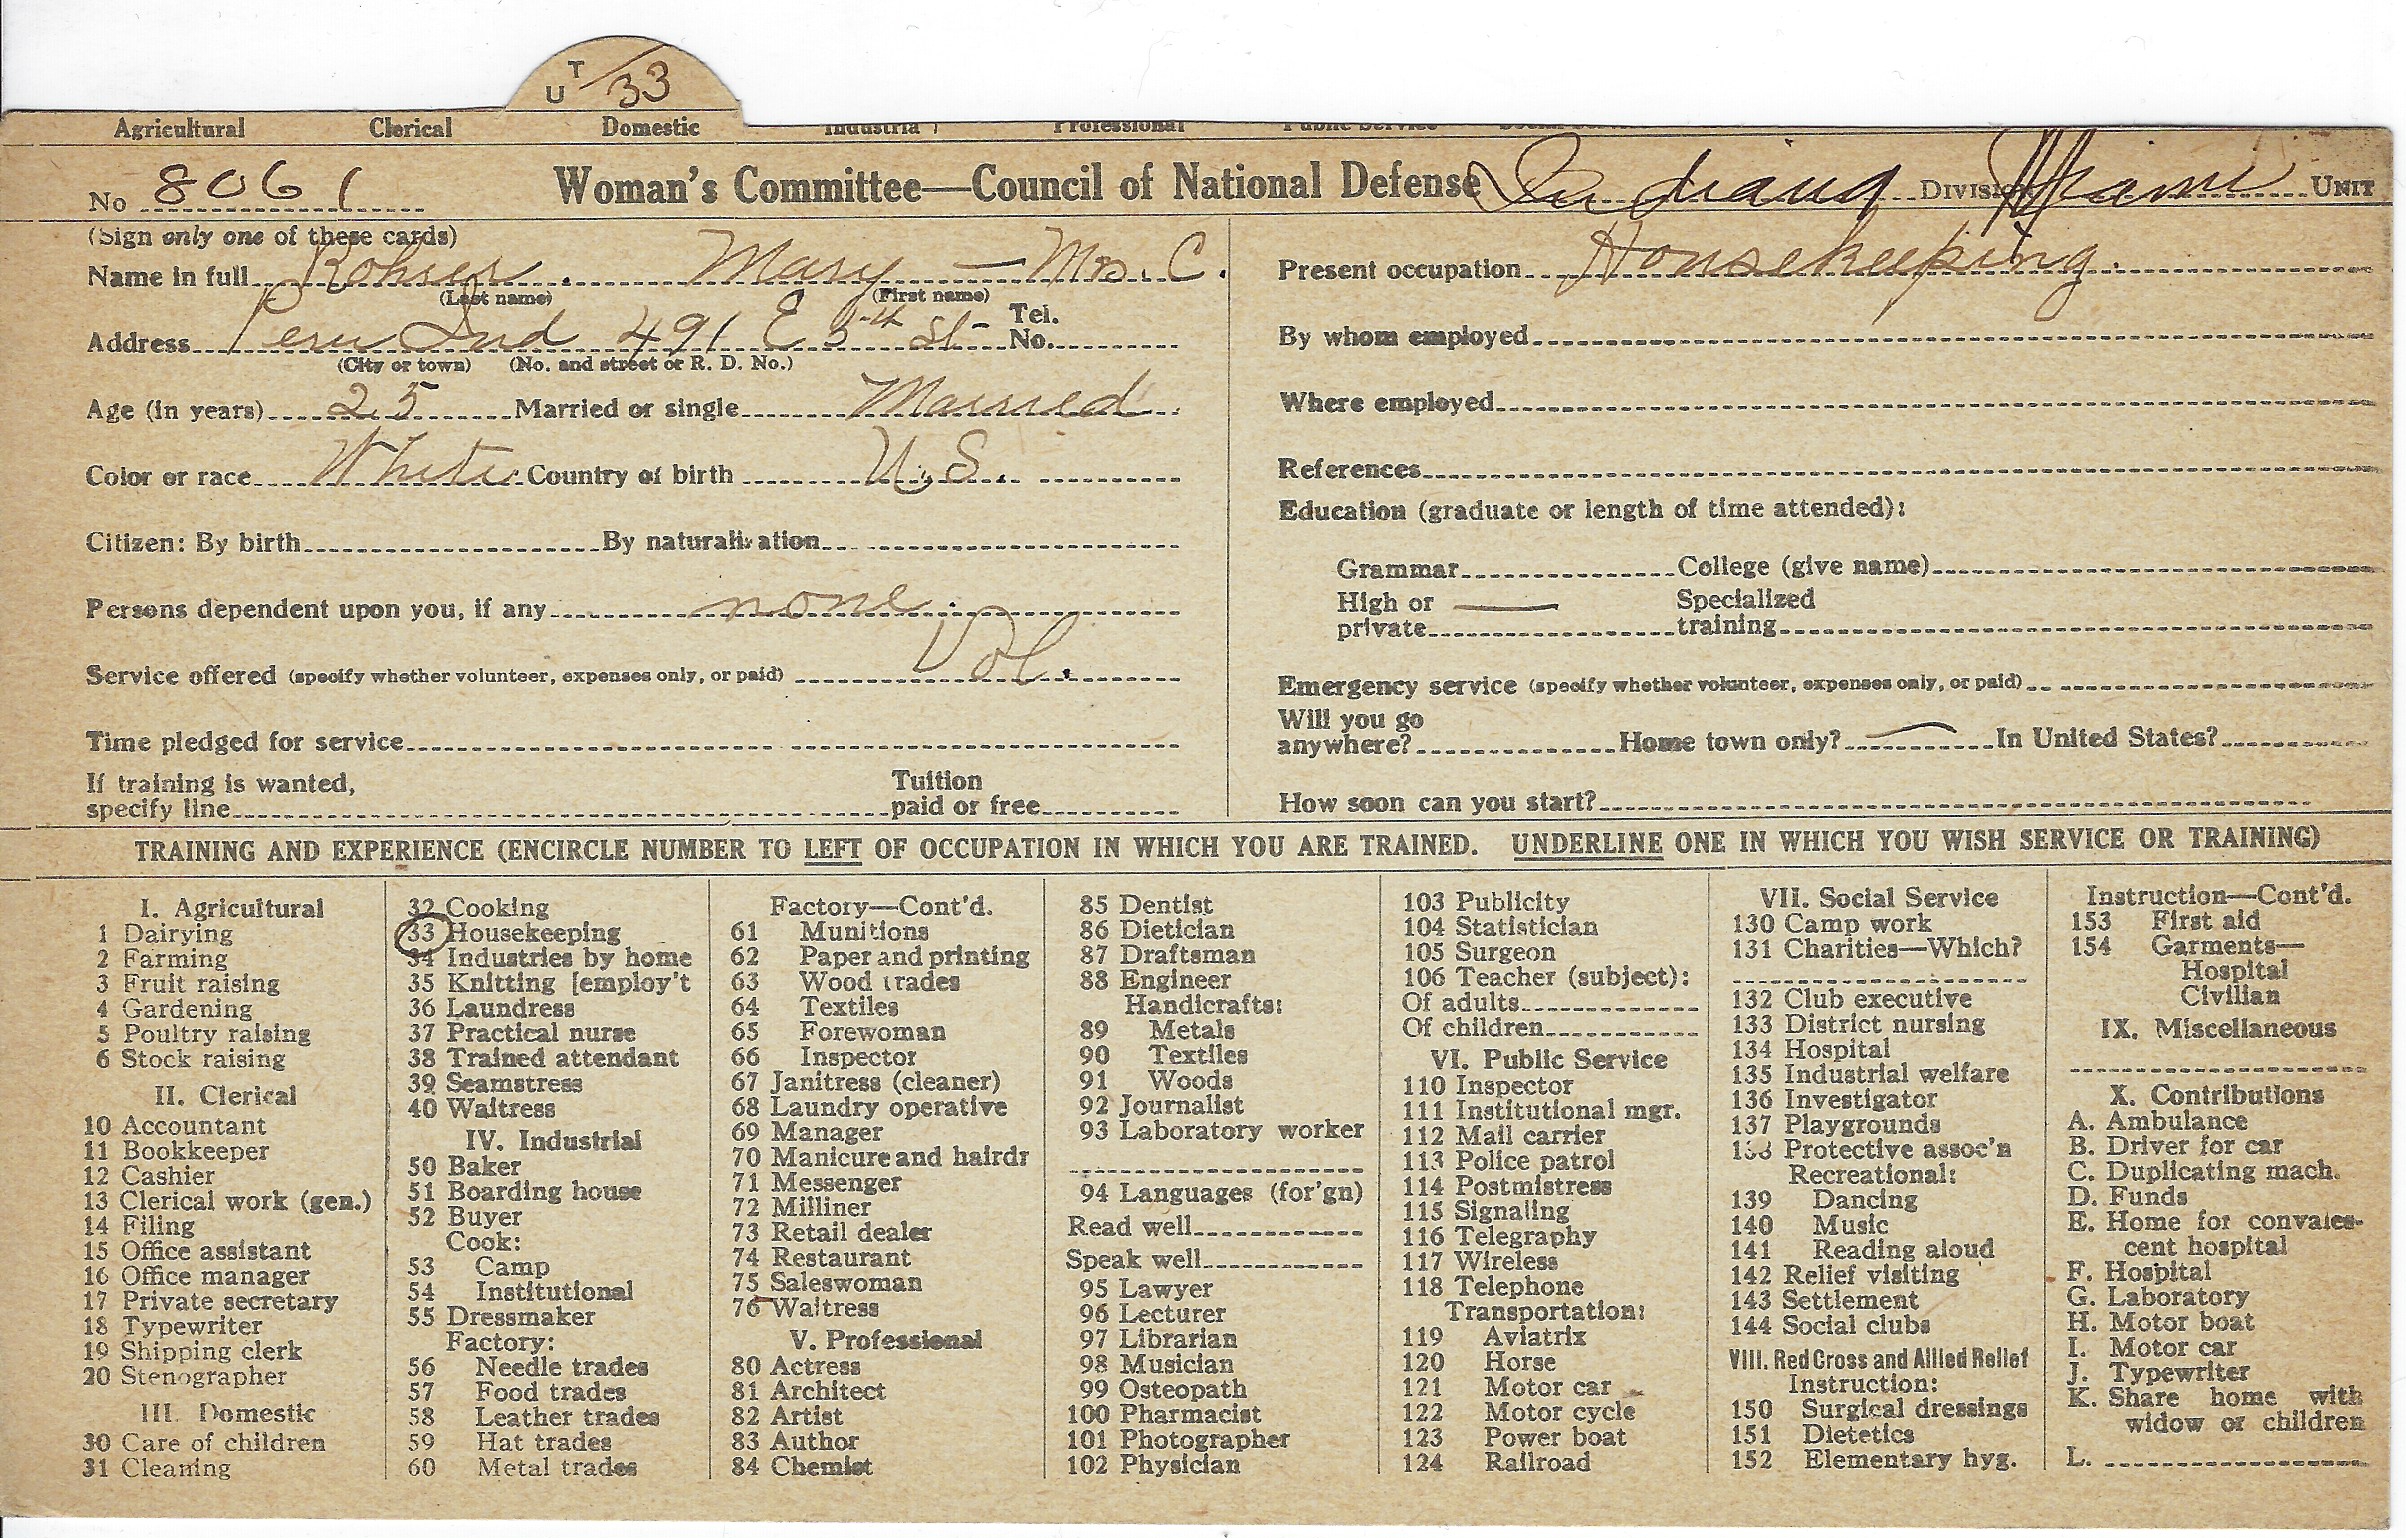 U T/33
Agricultural Clerical Domestic Industrial Professional Public Service
No 8061 Woman's Committee—Council of National Defense Indiana DIVISION Miami UNIT
(Sign only one of these cards)
Name in full Rohrer. Mary — Mrs. C.
(Last name) (First name)
Address Peru Ind 491 E 5th St- Tel. No.
(City or town) (No. and street or R. D. No.)
Age (in years) 25 Married or single Married
Color or race White Country of birth U.S.
Citizen: By birth By naturalization
Persons dependent upon you, if any none.
Service offered (specify whether volunteer, expenses only, or paid) Vol.
Time pledged for service
If training is wanted, Tuition
specify line paid or free
Present occupation Housekeeping.
By whom employed
Where employed
References
Education (graduate or length of time attended):
Grammar College (give name)
High or — Specialized
private training
Emergency service (specify whether volunteer, expenses only, or paid)
Will you go
anywhere? Home town only? — In United States?
How soon can you start?
TRAINING AND EXPERIENCE (ENCIRCLE NUMBER TO LEFT OF OCCUPATION IN WHICH YOU ARE TRAINED. UNDERLINE ONE IN WHICH YOU WISH SERVICE OR TRAINING)
I. Agricultural
1 Dairying
2 Farming
3 Fruit raising
4 Gardening
5 Poultry raising
6 Stock raising
II. Clerical
10 Accountant
11 Bookkeeper
12 Cashier
13 Clerical work (gen.)
14 Filing
15 Office assistant
16 Office manager
17 Private secretary
18 Typewriter
19 Shipping clerk
20 Stenographer
III. Domestic
30 Care of children
31 Cleaning
32 Cooking
33 Housekeeping
34 Industries by home
35 Knitting [employ't
36 Laundress
37 Practical nurse
38 Trained attendant
39 Seamstress
40 Waitress
IV. Industrial
50 Baker
51 Boarding house
52 Buyer
Cook:
53 Camp
54 Institutional
55 Dressmaker
Factory:
56 Needle trades
57 Food trades
58 Leather trades
59 Hat trades
60 Metal trades
Factory—Cont'd.
61 Munitions
62 Paper and printing
63 Wood trades
64 Textiles
65 Forewoman
66 Inspector
67 Janitress (cleaner)
68 Laundry operative
69 Manager
70 Manicure and hairdr
71 Messenger
72 Milliner
73 Retail dealer
74 Restaurant
75 Saleswoman
76 Waitress
V. Professional
80 Actress
81 Architect
82 Artist
83 Author
84 Chemist
85 Dentist
86 Dietician
87 Draftsman
88 Engineer
Handicrafts:
89 Metals
90 Textiles
91 Woods
92 Journalist
93 Laboratory worker
94 Languages (for'gn)
Read well
Speak well
95 Lawyer
96 Lecturer
97 Librarian
98 Musician
99 Osteopath
100 Pharmacist
101 Photographer
102 Physician
103 Publicity
104 Statistician
105 Surgeon
106 Teacher (subject):
Of adults
Of children
VI. Public Service
110 Inspector
111 Institutional mgr.
112 Mail carrier
113 Police patrol
114 Postmistress
115 Signaling
116 Telegraphy
117 Wireless
118 Telephone
Transportation:
119 Aviatrix
120 Horse
121 Motor car
122 Motor cycle
123 Power boat
124 Railroad
VII. Social Service
130 Camp work
131 Charities—Which?
132 Club executive
133 District nursing
134 Hospital
135 Industrial welfare
136 Investigator
137 Playgrounds
138 Protective assoc'n
Recreational:
139 Dancing
140 Music
141 Reading aloud
142 Relief visiting
143 Settlement
144 Social clubs
VIII. Red Cross and Allied Relief
Instruction:
150 Surgical dressings
151 Dietetics
152 Elementary hyg.
Instruction—Cont'd.
153 First aid
154 Garments—
Hospital
Civilian
IX. Miscellaneous
X. Contributions
A. Ambulance
B. Driver for car
C. Duplicating mach.
D. Funds
E. Home for convales-
cent hospital
F. Hospital
G. Laboratory
H. Motor boat
I. Motor car
J. Typewriter
K. Share home with
widow or children
L.